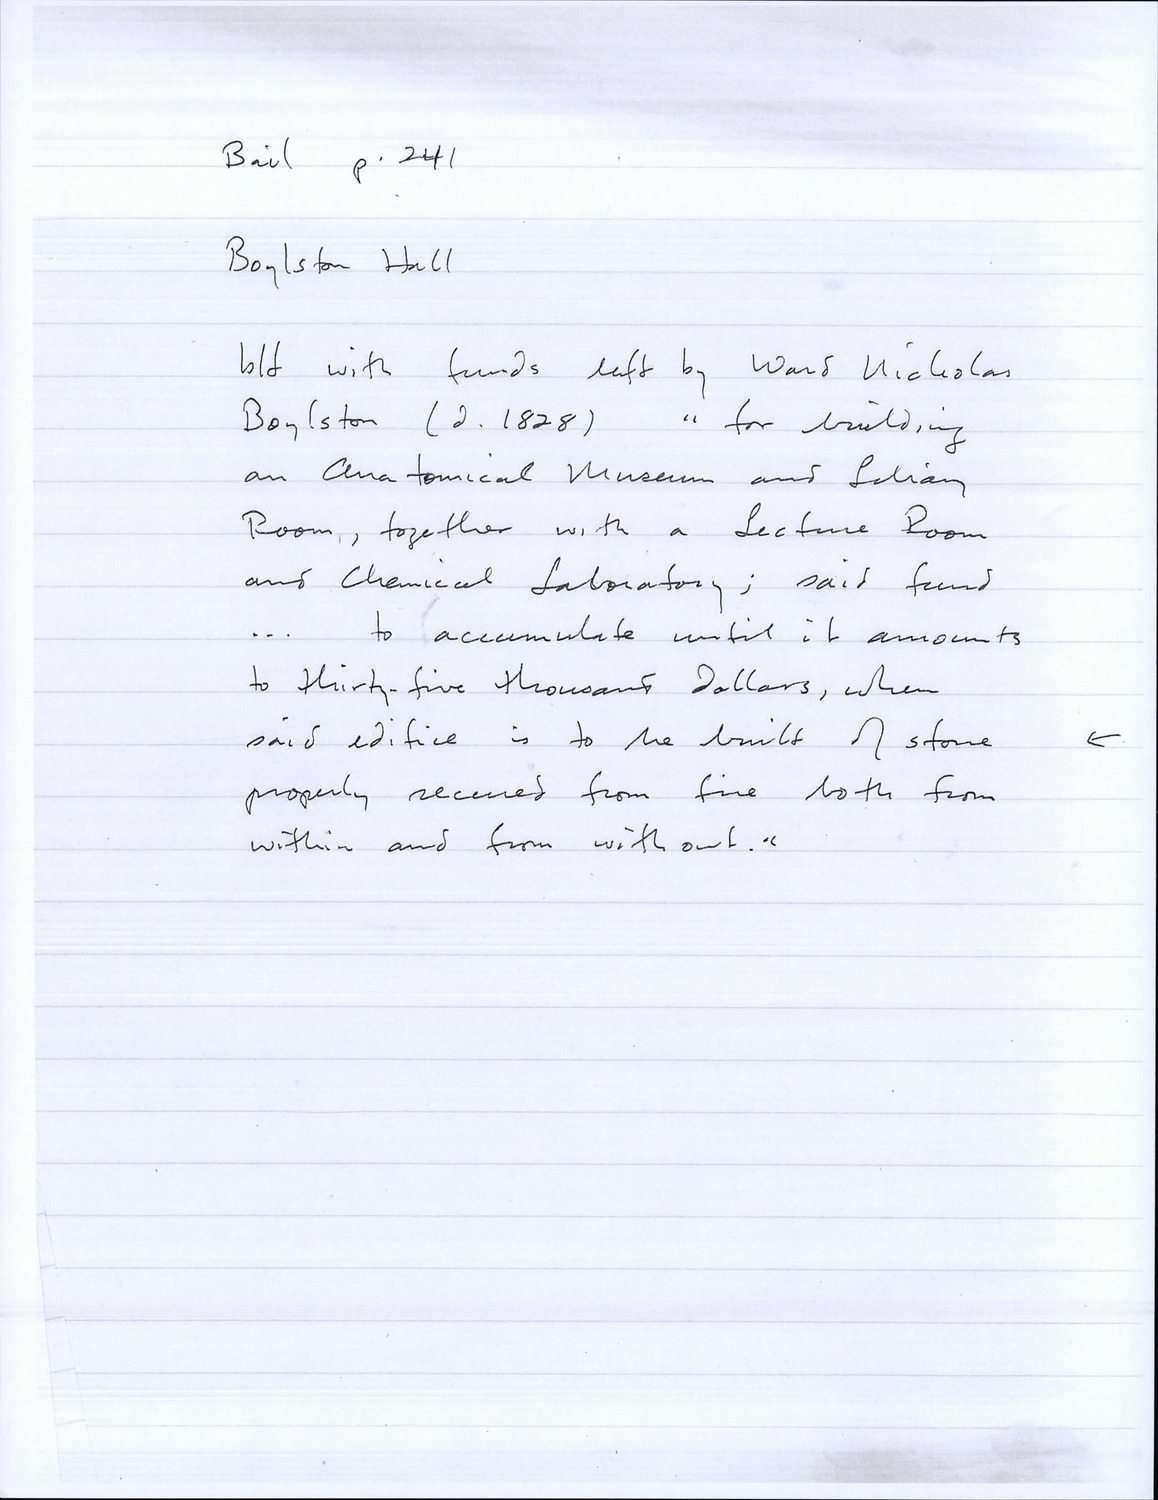 Bail p. 241
Boylston Hall
blt with funds left by Ward Nicholas
Boylston (d. 1828) "for building
an Anatomical Museum and Library
Room, together with a Lecture Room
and Chemical Laboratory; said fund
... to accumulate until it amounts
to thirty-five thousand dollars, when
said edifice is to be built of stone ←
properly secured from fire both from
within and from without."